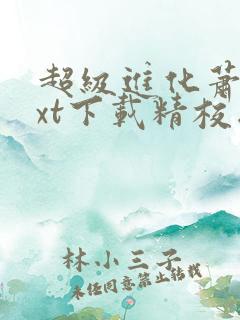 超級進化蕭
xt下載精校
林小三子
未经同意禁止转载